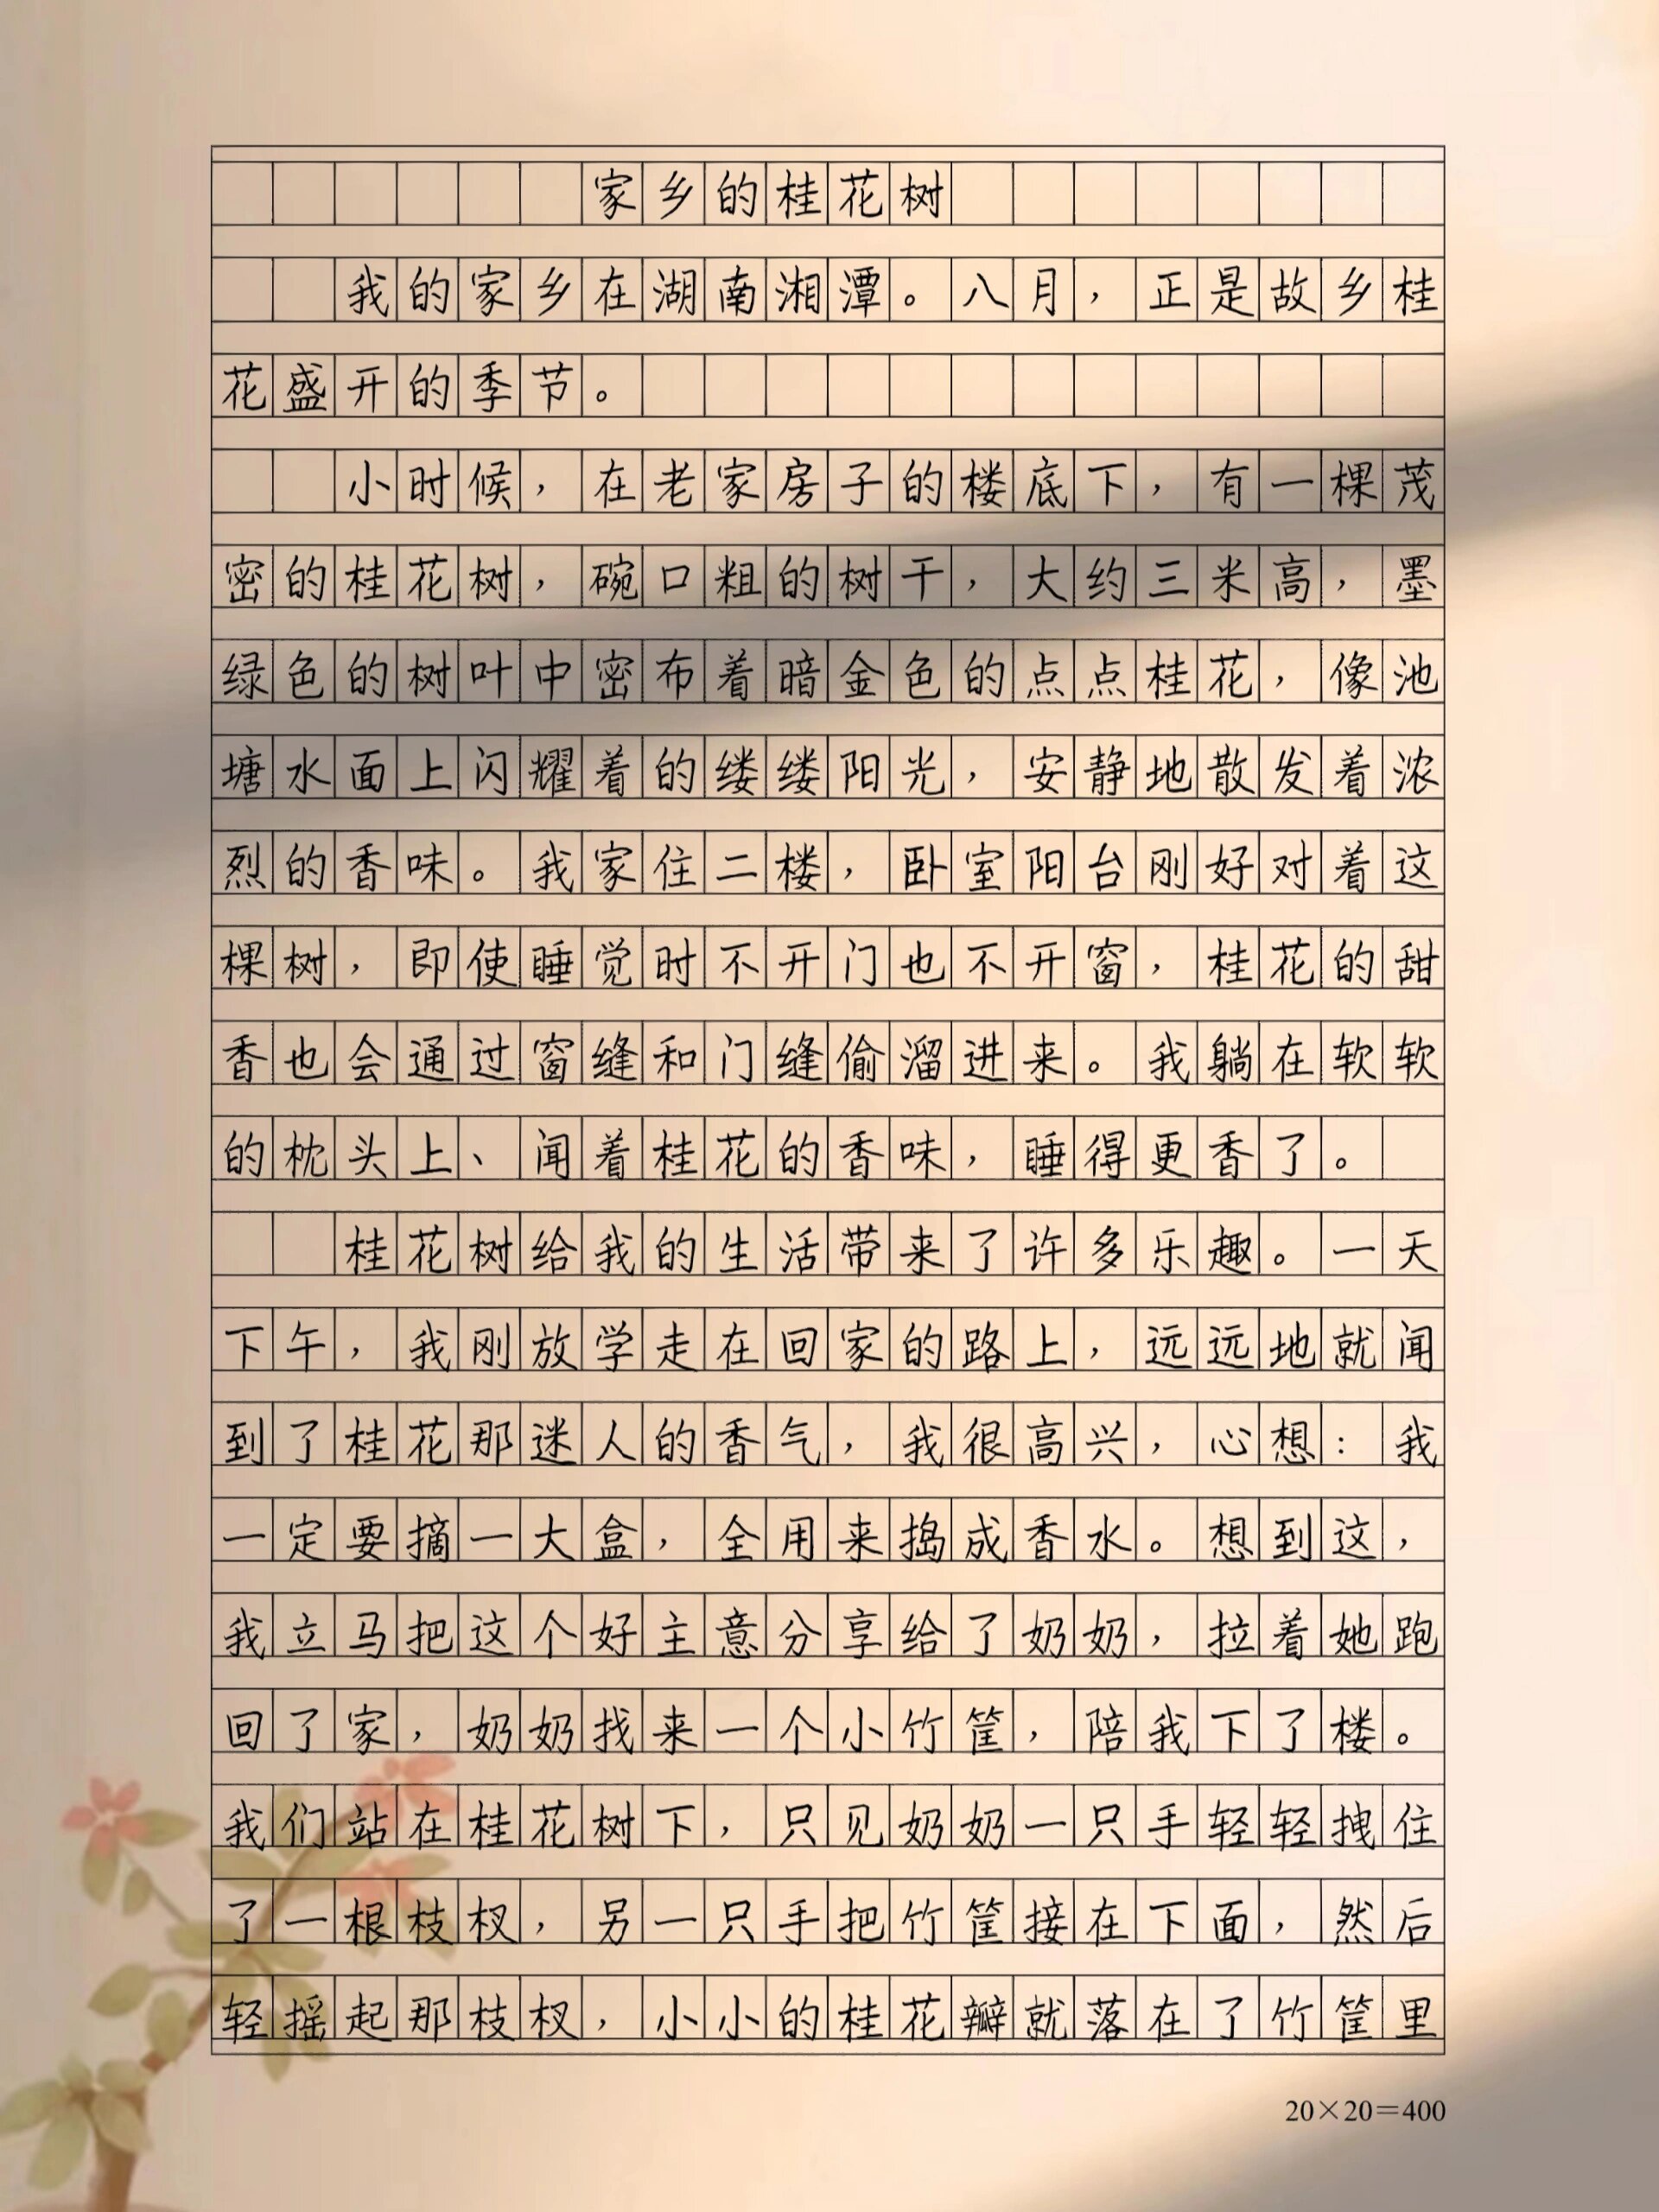 家乡的桂花树
我的家乡在湖南湘潭。八月，正是故乡桂
花盛开的季节。
小时候，在老家房子的楼底下，有一棵茂
密的桂花树，碗口粗的树干，大约三米高，墨
绿色的树叶中密布着暗金色的点点桂花，像池
塘水面上闪耀着的缕缕阳光，安静地散发着浓
烈的香味。我家住二楼，卧室阳台刚好对着这
棵树，即使睡觉时不开门也不开窗，桂花的甜
香也会通过窗缝和门缝偷溜进来。我躺在软软
的枕头上、闻着桂花的香味，睡得更香了。
桂花树给我的生活带来了许多乐趣。一天
下午，我刚放学走在回家的路上，远远地就闻
到了桂花那迷人的香气，我很高兴，心想：我
一定要摘一大盒，全用来捣成香水。想到这，
我立马把这个好主意分享给了奶奶，拉着她跑
回了家，奶奶找来一个小竹筐，陪我下了楼。
我们站在桂花树下，只见奶奶一只手轻轻拽住
了一根枝杈，另一只手把竹筐接在下面，然后
轻摇起那枝杈，小小的桂花瓣就落在了竹筐里
20×20＝400